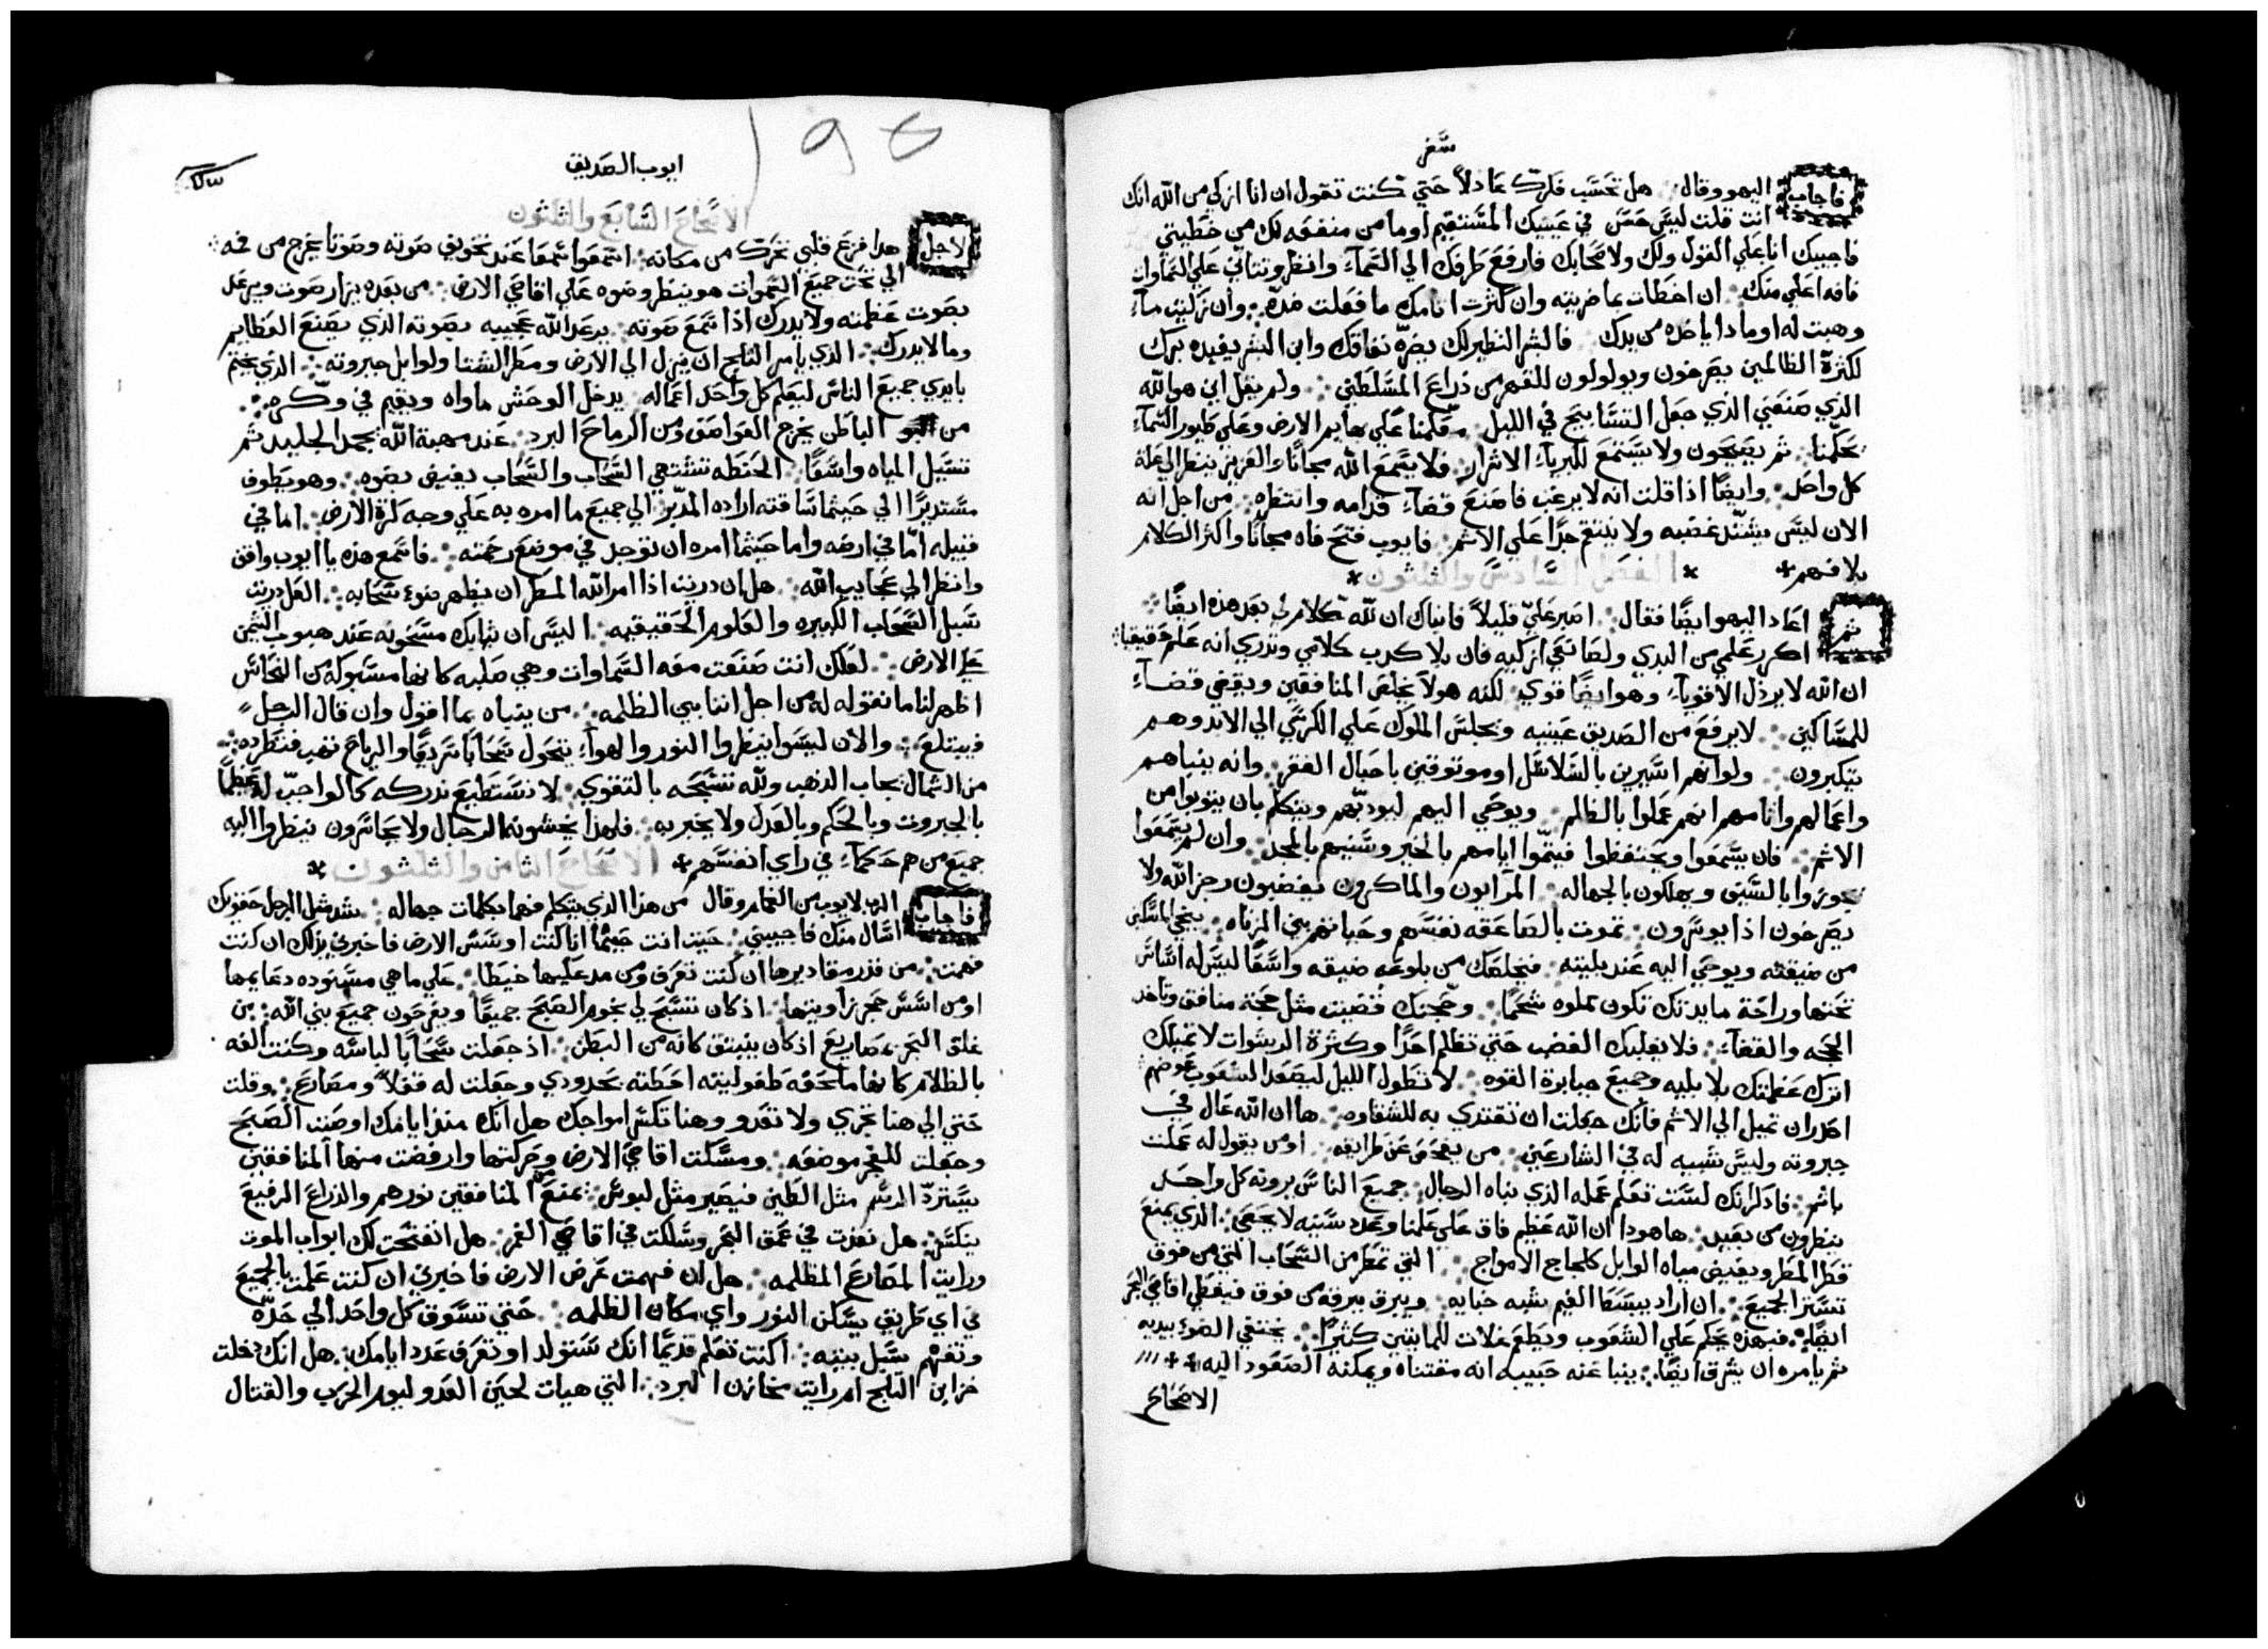 سفر
فاجاب اليهو وقال هل تحسب فكرك عادلاً حتي كنت تقول ان انا ازكي من الله انك
انت قلت ليس حسن في عينيك المستقيم اوما من منفعه لك من خطيتي
فاجيبك انا علي القول ولك ولاصحابك فارفع طرفك الي السماء وانظر وتتاني علي السماوات
فانه اعلي منك ان اخطات بما ضريته وان كثرت اثامك ما فعلت ضده وان زكيت ماء
وهبت له او ماذا ياخذ من يدك فالبشر النظير لك يضره نفاقك وابن البشر يفيده برك
لكثرة الظالمين يصرخون ويولولون للقهر من ذراع المسلطين ولم يقل اين هو الله
الذي صنعني الذي جعل التسابيح في الليل علي بهايم الارض وعلي طيور السماء
يحكمنا ثم يصيحون ولا يستمع لكبرياء الاشرار فلا يسمع الله مجانًا والعزيز ينظر الي علة
كل واحد وايضًا اذا قلت انه لا يرغب فاصنع قضاء قدامه وانتظره من اجل انه
الان ليس يشتد غضبه ولا ينتقم جدًا علي الاثم فايوب فتح فاه مجانًا واكثر الكلام
بلا فهم
الفصل السادس والثلثون
ثم اعاد اليهو ايضًا فقال اصبر علي قليلاً فانباك ان لله كلام لي بعد هذه ايضًا
اكرر علمي من البدي ولصانعي ازكيه فان بلا كرب كلامي وتدري انه علم حقيقيا
ان الله لا يرذل الاقوياء وهو ايضًا قوي لكنه هولا يخلص المنافقين ويقضي قضاء
للمساكين لا يرفع من الصديق عينيه ويجلس الملوك علي الكرسي الي الابد وهم
يتكبرون ولو انهم اسيرين بالسلاسل او موثوقين باحبال الفقر وانه ينباهم
واعمالهم واثامهم انهم عملوا بالظلم ويوحي اليهم ليودبهم ويتكلم بان يتوبوا من
الاثم فان يسمعوا ويحتفظوا فيتموا ايامهم بالخير وسنينهم بالمجد وان لم يسمعوا
يجوزوا بالسيف ويهلكون بالجهاله المرايون والماكرون يغضبون رجز الله ولا
يصرخون اذا يوسرون تموت بالصاعقه نفسهم وحياتهم بين الزناه ينجي المسكين
من ضيقته ويوحي اليه عند بليته فيخلصك من بلوعه ضيقه واسعًا ليس له اساس
تحتها وراحة مايدتك تكون مملوه شحمًا وحجتك قضيت مثل حجة منافق وتاخذ
الحجه والقضاء فلا يغلبك الغضب حتي تظلم احدًا وكثرة الرشوات لا تميلك
اترك عظمتك بلا بليه وجميع جبابرة القوه لا تطول الليل ليصعد الشعوب عوضهم
احذر ان تميل الي الاثم فانك جعلت ان تقتدي به للشقاوه ها ان الله عال في
جبروته وليس شبيه له في الشارعين من يفحص عن طرايقه او من يقول له عملت
باثم فاذكر انك لست تعلم عمله الذي نباه الرجال جميع الناس يرونه كل واحد
ينظرون من بعيد ها هودا ان الله عظيم فاق علي علمنا وعدد سنينه لا يحصي الذي يمنع
قطر المطر ويفيض مياه الوابل كلجاج الامواج التي تمطر من السحاب التي من فوق
تستر الجميع ان اراد يبسط الغيم شبه خبايه ويبرق ببرقه من فوق فيغطي اقاصي البحر
ايضًا فبهذه يحكم علي الشعوب ويطعم غلات للمايتين كثيرًا يختفي الضوء بيديه
ثم يامره ان يشرق ايضًا ينبا عنه حبيبه انه مقتناه ويمكنه الصعود اليه
الاصحاح
195
ايوب الصديق
الاصحاح السابع والثلثون
لاجل هذا فزع قلبي تحرك من مكانه اسمعوا سمعًا عند تخويف صوته وصوتا يخرج من فمه
الي تحت جميع السموات هو ينظر وضوه علي اقاصي الارض من بعده يزار صوت ويرعد
بصوت عظمته ولا يدرك اذا سمع صوته يرعد الله عجيبه بصوته الذي يصنع العظايم
وما لا يدرك الذي يامر الثلج ان ينزل الي الارض ومطر الشتا ولوابل جبروته الذي يختم
بايدي جميع الناس ليعلم كل واحد اعماله يدخل الوحش ماواه ويقيم في وكره
من الباطن يخرج العواصف ومن الرماح البرد عند مهبة الله يجمد الجليد ثم
تسيل المياه واسعًا الحنطه تشتهي السحاب والسحاب يفيض بضوه وهو يطوف
مستديرًا الي حيثما ساقته اراده المدبر الي جميع ما امره به علي وجه كرة الارض اما في
قبيله امّا في ارضه واما حيثما امره ان توجد في موضع رحمته فاسمع هذه يا ايوب واقف
وانظر الي عجايب الله هل ان دريت اذا امر الله المطر ان يظهر ضوء سحابه العل دريت
سبل السحاب الكبيره والعلوم الحقيقيه اليس ان ثيابك مسخونه عند هبوب التيمن
علي الارض لعلك انت صنعت معه السماوات وهي صلبه كانها مسبوكه من النحاس
اظهر لنا ما نقوله له من اجل اننا بني الظلمه من ينباه بما اقول وان قال الرجل
فيبتلع والان ليسوا ينظروا النور والهواء يتحول سحابا سريعًا والرياح تهب فتطرده
من الشمال بجاب الذهب ولله تسبحه بالتقوي لا نستطيع ندركه كالواجب له عظيمًا
بالجبروت وبالحكم وبالعدل ولا يخبر به فلهذا يخشونه الرجال ولا يجاسرون ينظروا اليه
جميع من هم حكماء في راي انفسهم
الاصحاح الثامن والثلثون
فاجاب الرب لايوب من الغمام وقال من هذا الذي يتكلم فهما بكلمات جهاله شد مثل الرجل حقويك
اسال منك فاجيبني حيث انت حيثما انا كنت اوسس الارض فاخبرني بذلك ان كنت
فهمت من قدر مقاديرها ان كنت تعرف ومن مد عليها خيطا علي ما هي مسنوده دعايمها
او من اسس حجر زاويتها اذ كان تسبح لي نجوم الصبح جميعًا ويفرحون جميع بني الله من
غلق البحر بمصاريع اذ كان ينبثق كانه من البطن اذ جعلت سحابا لباسه وكنت الفه
بالظلام كانها ملحفه طفوليته احطته بحدودي وجعلت له قفلاً ومصارع وقلت
حتي الي هنا تجري ولا تعدو وهنا تكسر امواجك هل انك منذ ايامك اوصيت الصبح
وجعلت للفجر موضعه ومسكت اقاصي الارض وحركتها وارفضت منها المنافقين
يسترد الرسم مثل الطين فيصير مثل لبوس يمنع من المنافقين نورهم والذراع الرفيع
ينكسر هل نفذت في عمق البحر وسلكت في اقاصي الغمر هل انفتحت لك ابواب الموت
ورايت المصارع المظلمه هل ان فهمت عرض الارض فاخبرني ان كنت علمت بالجميع
في اي طريق يسكن النور واي مكان الظلمه حتي تسوق كل واحد الي حده
وتفهم سبل بيته اكنت تعلم قديمًا انك ستولد او تعرف عدد ايامك هل انك دخلت
خزاين الثلج ام رايت مخازن البرد التي هيات لحين العدو ليوم الحرب والقتال